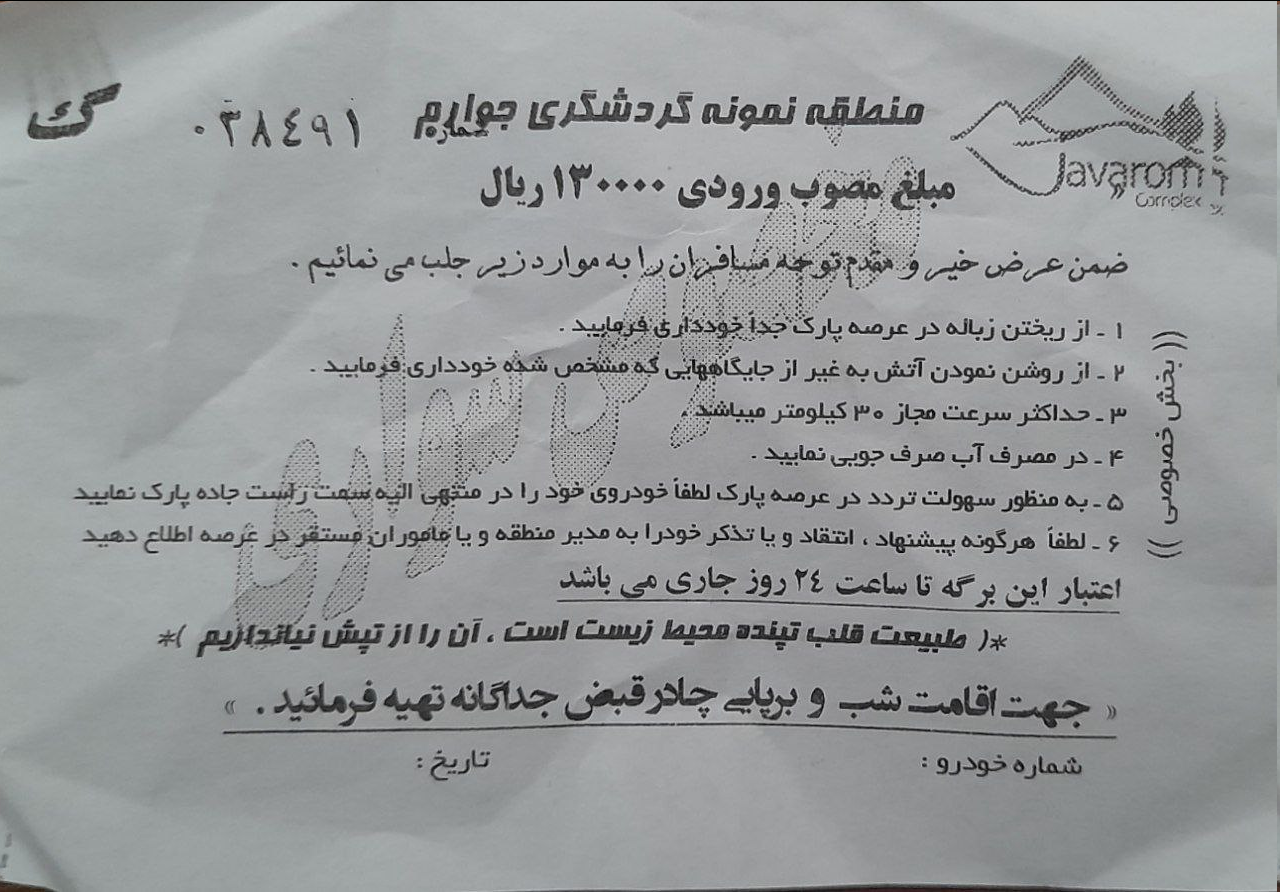 منطقه نمونه گردشگری جوارم
شماره
۰۳۸٤۹۱
گ
Javarom
Complex
مبلغ مصوب ورودی ۱۳۰۰۰۰ ریال
ضمن عرض خیر و مقدم توجه مسافران را به موارد زیر جلب می نمائیم .
(( بخش خصوصی ))
۱ - از ریختن زباله در عرصه پارک جداً خودداری فرمایید .
۲ - از روشن نمودن آتش به غیر از جایگاههایی که مشخص شده خودداری فرمایید .
۳ - حداکثر سرعت مجاز ۳۰ کیلومتر میباشد .
۴ - در مصرف آب صرف جویی نمایید .
۵ - به منظور سهولت تردد در عرصه پارک لطفاً خودروی خود را در منتهی الیه سمت راست جاده پارک نمایید
۶ - لطفاً هرگونه پیشنهاد ، انتقاد و یا تذکر خودرا به مدیر منطقه و یا ماموران مستقر در عرصه اطلاع دهید
اعتبار این برگه تا ساعت ۲٤ روز جاری می باشد
*( طبیعت قلب تپنده محیط زیست است ، آن را از تپش نیاندازیم )*
« جهت اقامت شب و برپایی چادر قبض جداگانه تهیه فرمائید . »
شماره خودرو :
تاریخ :
سواری